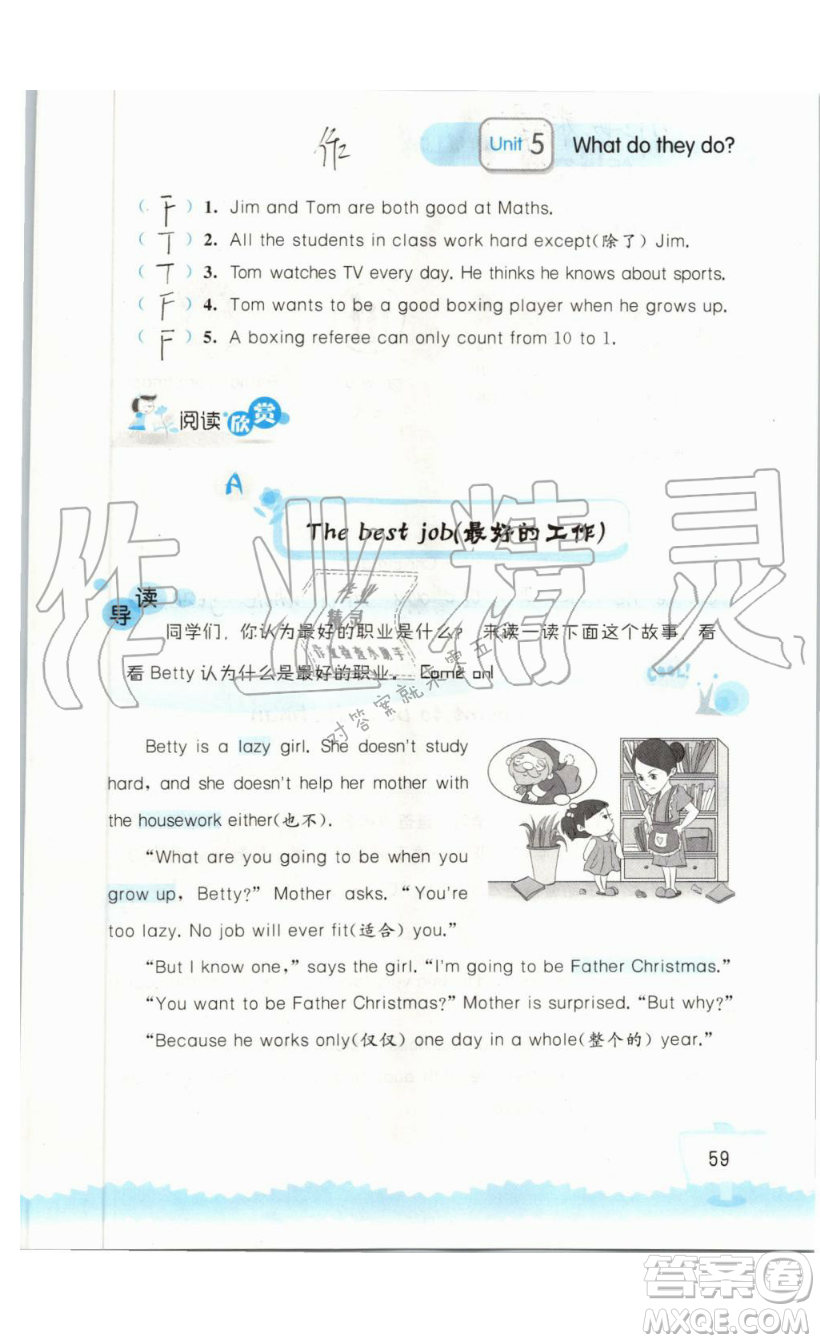 作
Unit 5 What do they do?
( F ) 1. Jim and Tom are both good at Maths.
( T ) 2. All the students in class work hard except(除了) Jim.
( T ) 3. Tom watches TV every day. He thinks he knows about sports.
( F ) 4. Tom wants to be a good boxing player when he grows up.
( F ) 5. A boxing referee can only count from 10 to 1.
阅读欣赏
A
The best job(最好的工作)
导读
同学们，你认为最好的职业是什么？来读一读下面这个故事，看
看 Betty 认为什么是最好的职业。 Come on!
作业精灵
作业
精灵
作业检查小助手
对答案就来零五
Betty is a lazy girl. She doesn't study
hard, and she doesn't help her mother with
the housework either(也不).
“What are you going to be when you
grow up, Betty?” Mother asks. “You're
too lazy. No job will ever fit(适合) you.”
“But I know one,” says the girl. “I'm going to be Father Christmas.”
“You want to be Father Christmas?” Mother is surprised. “But why?”
“Because he works only(仅仅) one day in a whole(整个的) year.”
59
答案卷
MXQE.COM